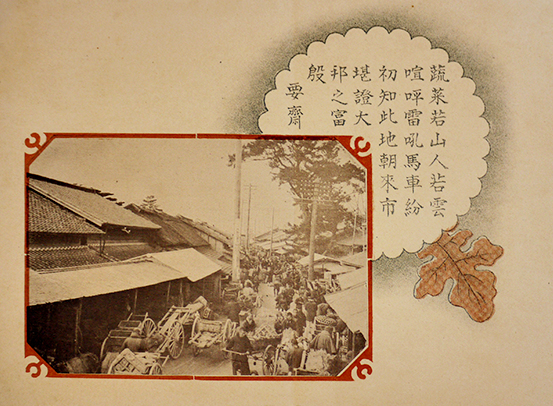 蔬菜若山人若雲
喧呼雷吼馬車紛
初知此地朝来市
堪證大
邦之富
殷
要齋